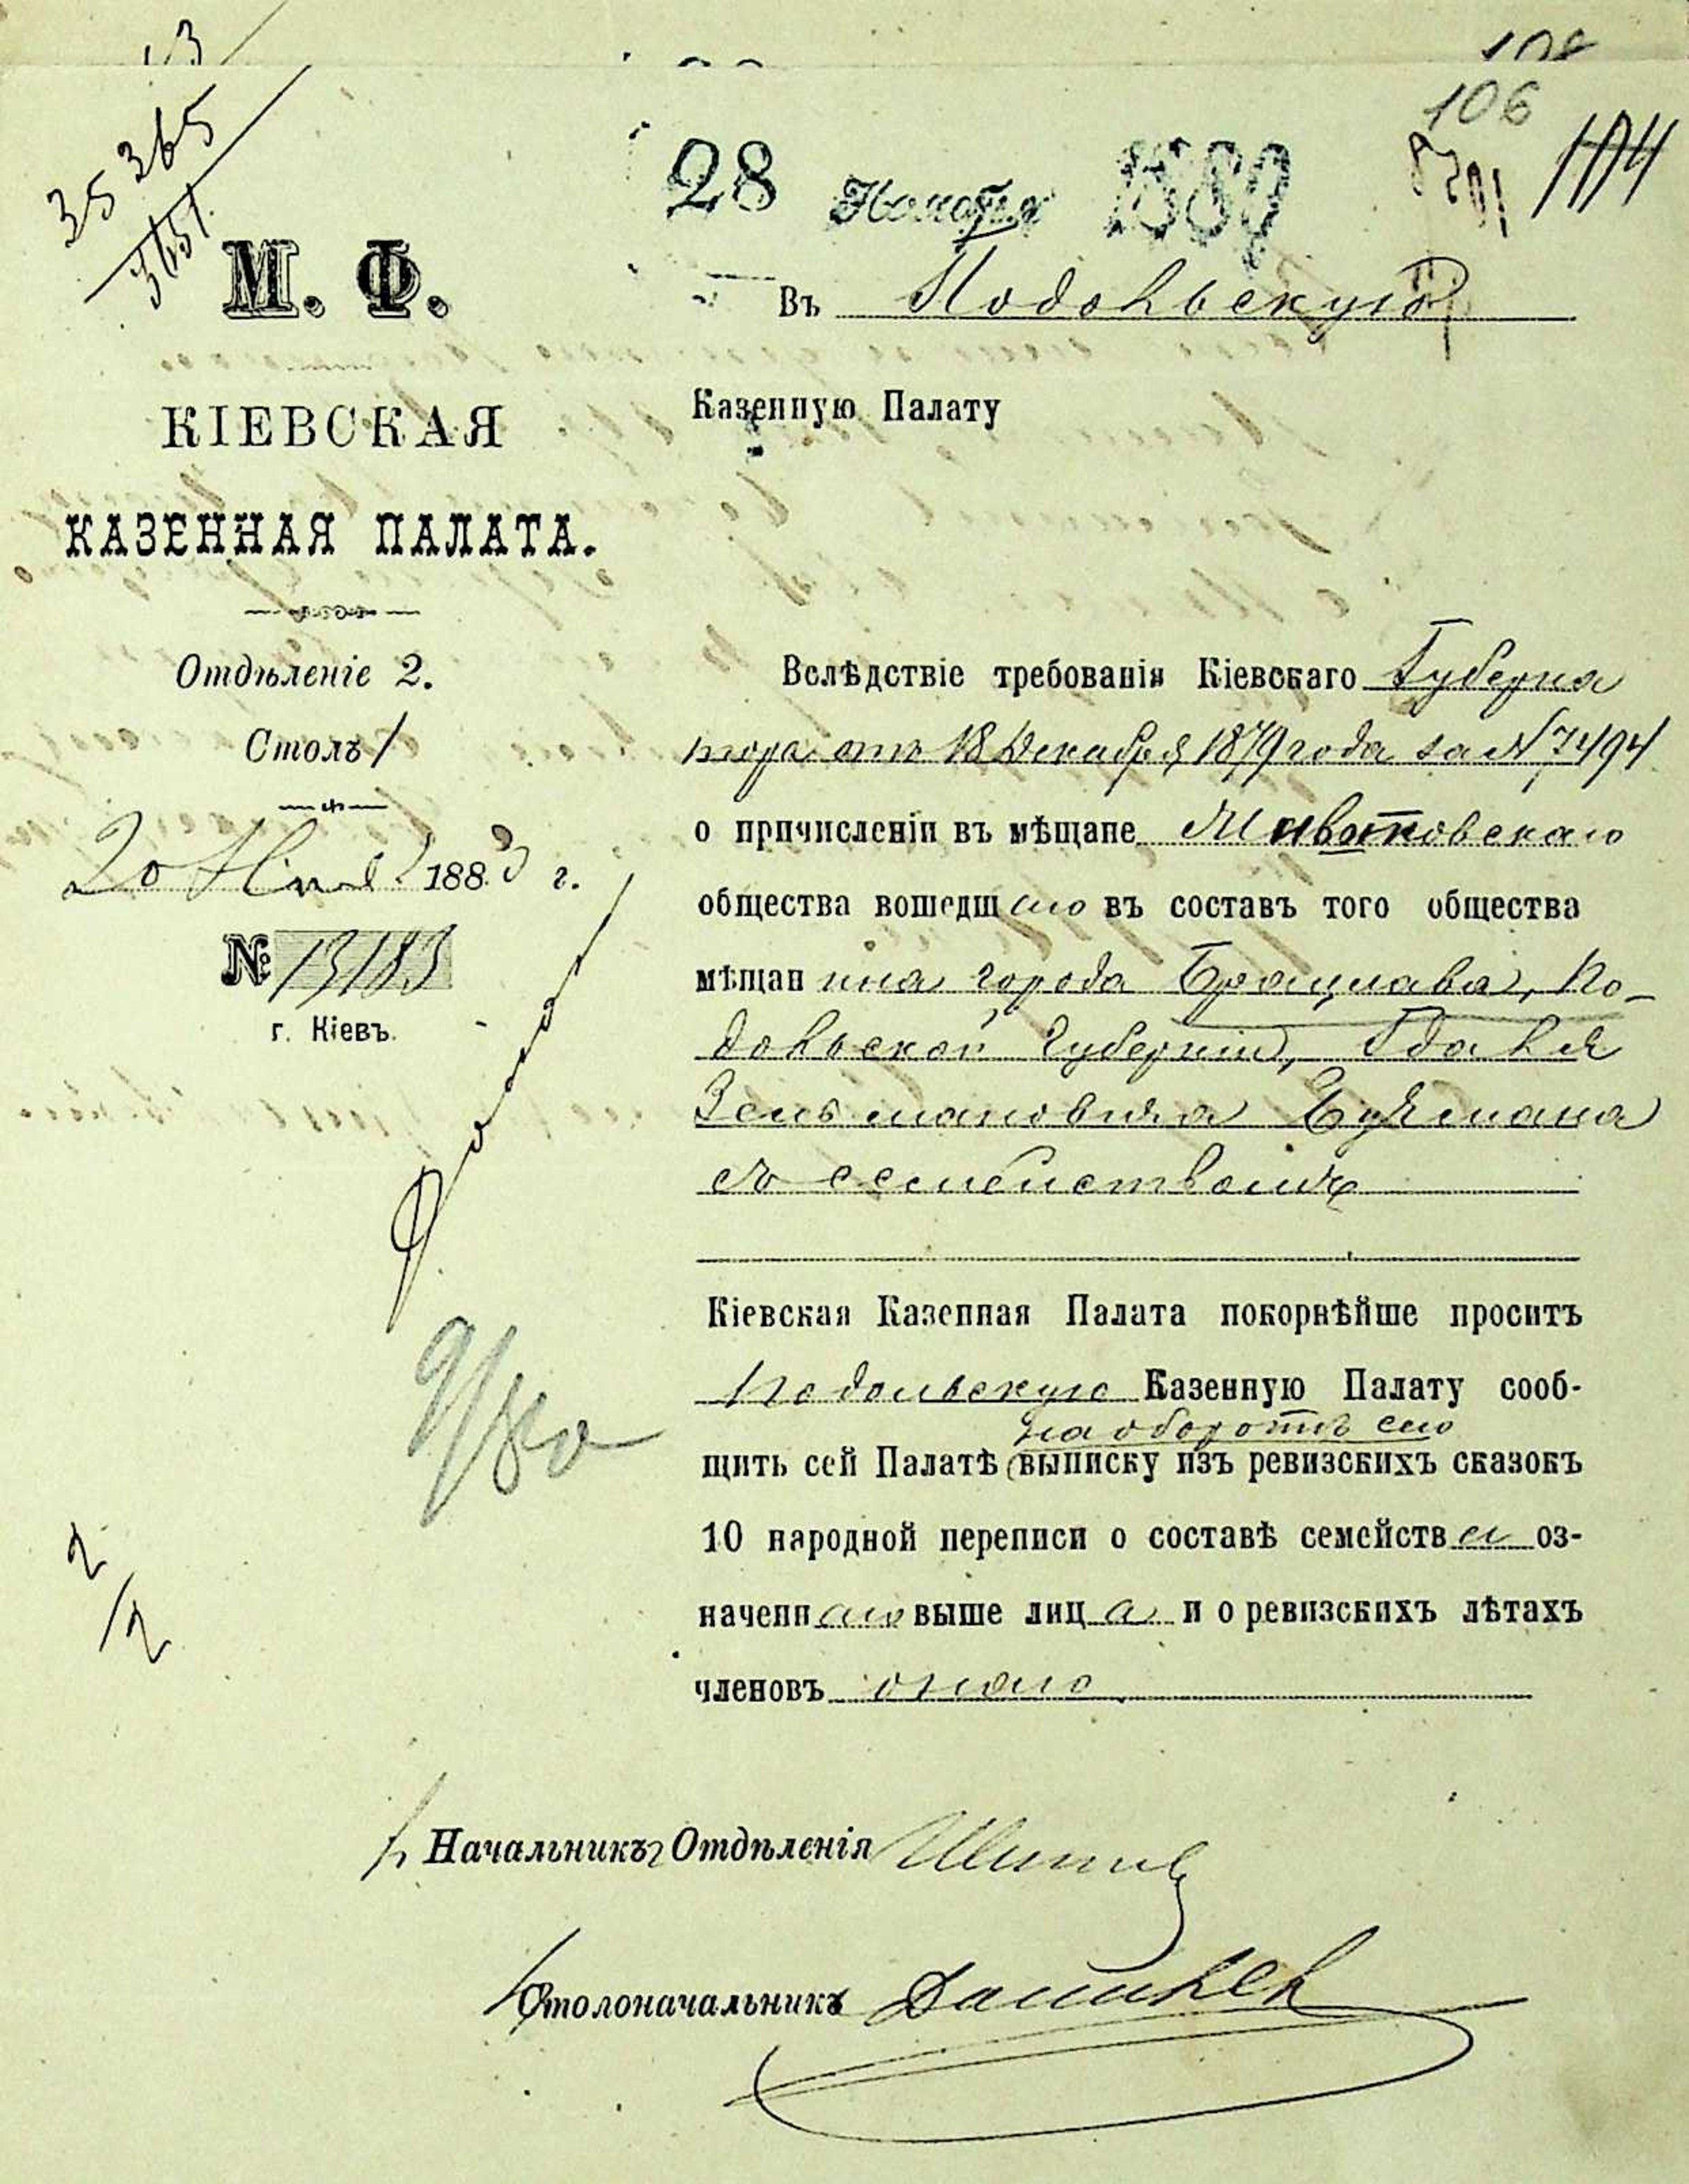 106
35365
3651
104
28 Ноября 188
М. Ф.
КІЕВСКАЯ
КАЗЕННАЯ ПАЛАТА.
Отдѣленіе 2.
Столъ 1
20 188 г.
№ 13183
г. Кіевъ.
Въ Подольскую
Казенную Палату
Вслѣдствіе требованія Кіевскаго Губерна
тора отъ 18 Декабря 1879 года за № 7494
о причисленіи въ мѣщане
общества вошедшаго въ составъ того общества
мѣщанина города Брацлава, По-
дольской губерніи, Гдаля
Зельмановича
съ семействомъ
Кіевская Казенная Палата покорнѣйше проситъ
Подольскую Казенную Палату сооб-
на оборотѣ сего
щить сей Палатѣ выписку изъ ревизскихъ сказокъ
10 народной переписи о составѣ семейства оз-
наченнаго выше лица и о ревизскихъ лѣтахъ
членовъ онаго
Начальникъ Отдѣленія
Столоначальникъ